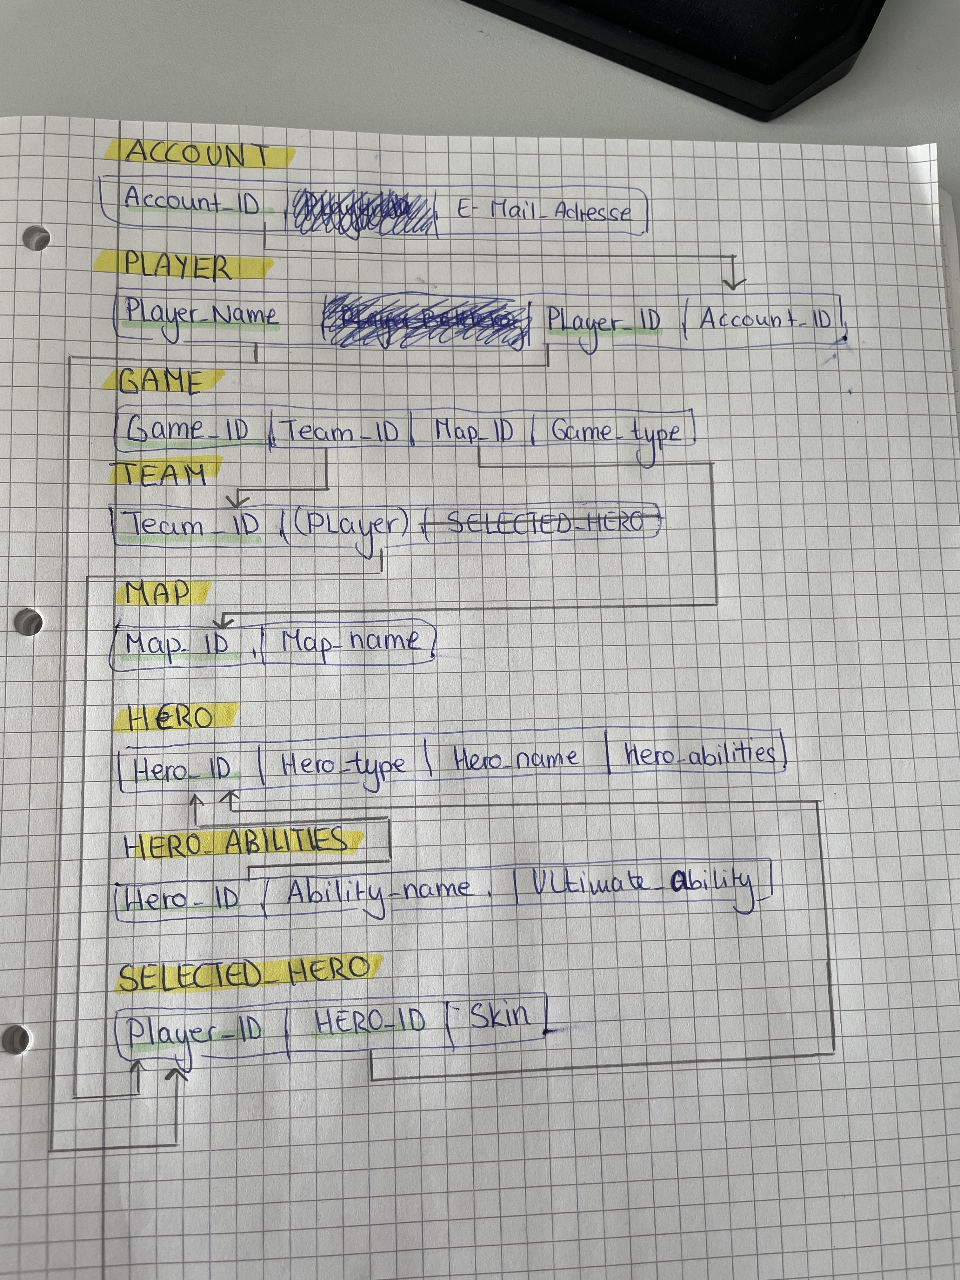 ACCOUNT
Account_ID E-Mail_Adresse
PLAYER
Player_Name Player_ID Account_ID
GAME
Game_ID Team_ID Map_ID Game_type
TEAM
Team_ID (Player) SELECTED_HERO
MAP
Map_ID Map_name
HERO
Hero_ID Hero_type Hero_name Hero_abilities
HERO_ABILITIES
Hero_ID Ability_name Ultimate_ability
SELECTED_HERO
Player_ID HERO_ID Skin